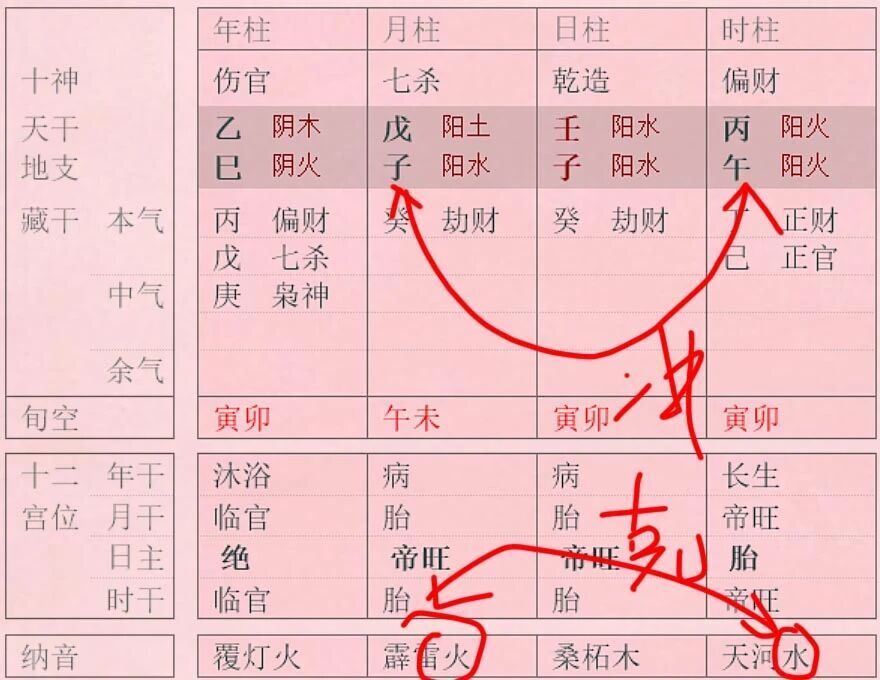 年柱 月柱 日柱 时柱
十神 伤官 七杀 乾造 偏财
天干 乙 阴木 戊 阳土 壬 阳水 丙 阳火
地支 巳 阴火 子 阳水 子 阳水 午 阳火
藏干 本气 丙 偏财 癸 劫财 癸 劫财 丁 正财
戊 七杀 己 正官
中气 庚 枭神
冲
余气
旬空 寅卯 午未 寅卯 寅卯
十二 年干 沐浴 病 病 长生
宫位 月干 临官 胎 胎 帝旺
克
日主 绝 帝旺 帝旺 胎
时干 临官 胎 胎 帝旺
纳音 覆灯火 霹雷火 桑柘木 天河水